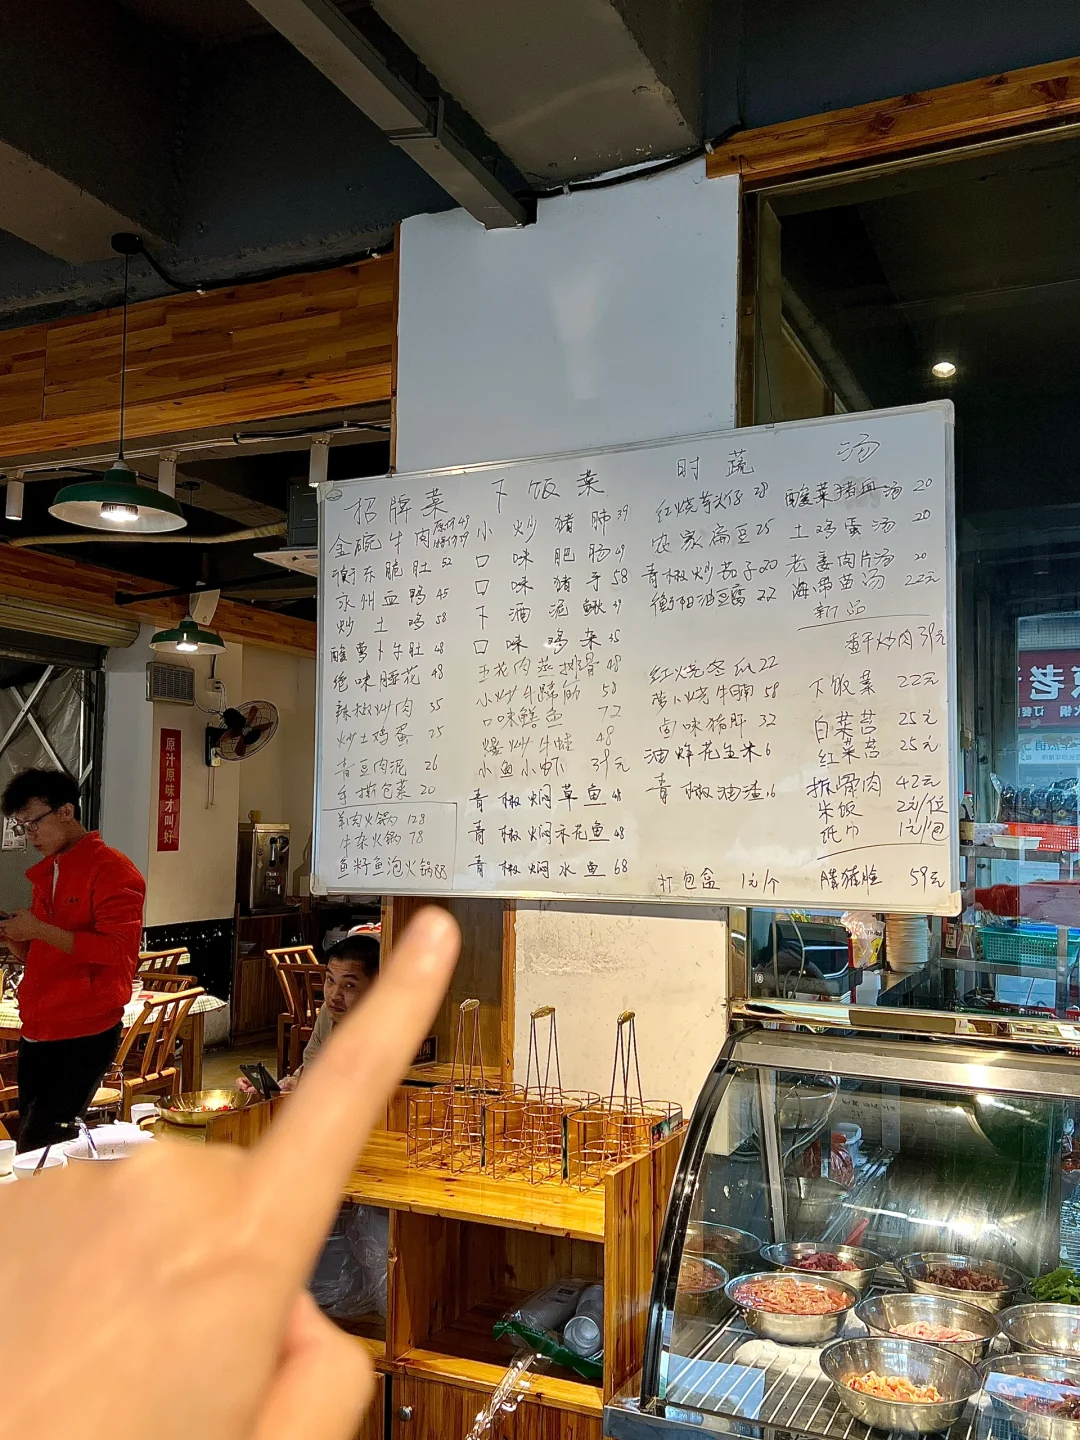 招牌菜
金碗牛肉 原价49 特价39
衡东脆肚 52
永州血鸭 45
炒土鸡 58
酸萝卜牛肚 48
绝味腰花 48
辣椒炒肉 35
炒土鸡蛋 25
青豆肉泥 26
手撕包菜 20
羊肉火锅 128
牛杂火锅 78
鱼籽鱼泡火锅 88
下饭菜
小炒猪肺 39
口味肥肠 49
口味猪手 58
下酒泥鳅 49
口味鸡杂 35
五花肉蒸排骨 48
小炒牛蹄筋 58
口味鳝鱼 72
爆炒牛蛙 48
小鱼小虾 39元
青椒焖草鱼 48
青椒焖禾花鱼 48
青椒焖水鱼 68
时蔬
红烧芋头仔 28
农家扁豆 25
青椒炒茄子 20
衡阳油豆腐 22
红烧冬瓜 22
萝卜烧牛腩 58
卤味猪肝 32
油炸花生米 6
青椒油渣 16
打包盒 1元/个
汤
酸菜猪血汤 20
土鸡蛋汤 20
老姜肉片汤 20
海带苗汤 22元
新品
香干炒肉 39元
下饭菜 22元
白菜苔 25元
红菜苔 25元
拆骨肉 42元
米饭 2元/位
纸巾 1元/包
腊猪脸 59元
原汁原味才叫好
老
火锅
订餐